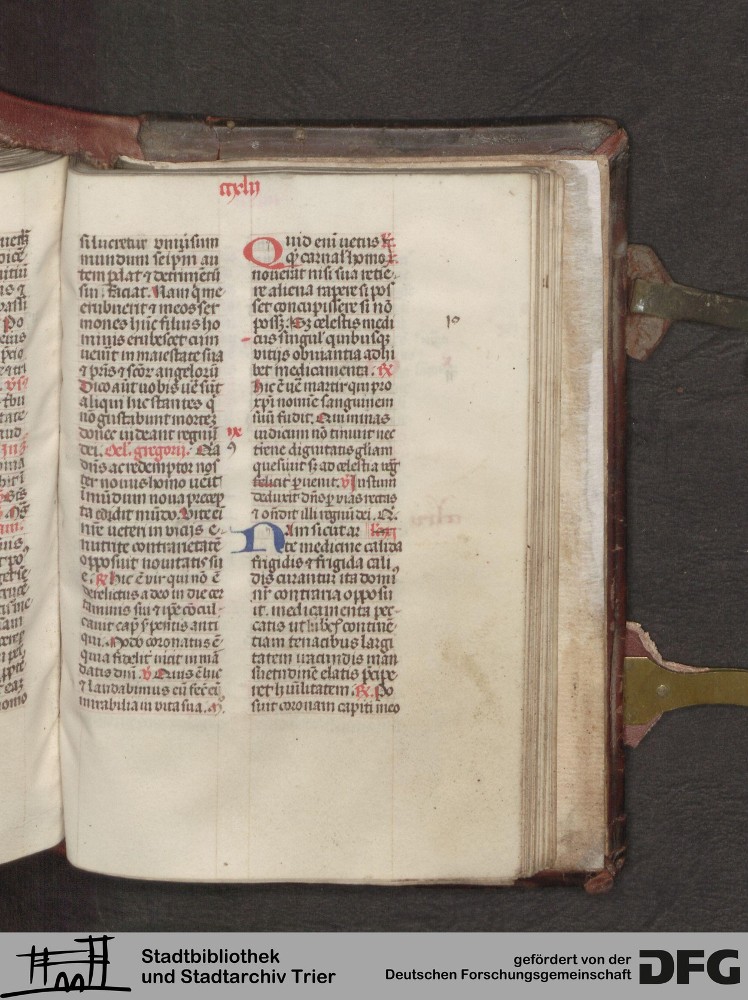 ccxlij
si lucretur vniversum
mundum seipm au
tem p̱dat ⁊ detrimētū
sui faciat. Nam q̄ me
erubuerit ⁊ meos ser
mones hūc filius ho
minis erubescet cum
uenit in maiestate sua
⁊ pr̄is ⁊ scōr angelorū
Dico aūt uobis ue sūt
aliqui hic stantes q̄
nō gustabunt mortez
donec uideant regnū
dei. Oel. gregorij. Quia
dn̄s ac redemptor nos
ter nouus homo uenit
ī mūdum noua precep
ta cōdit mūdo. Vite ei
nr̄e ueteri in viciis e
nutrite contrarietatē
opposuit nouitatis su
e. R Hic ē vir qui nō ē
derelictus a deo in die cer
taminis sui ⁊ ip̄e cōcul
cauit cap̄ s̄pentis anti
qui. Modo coronatus ē
quia fideliter vicit in mā
datis dn̄i. v Quis ē hic
⁊ laudabimus eū fec̄ eī
mirabilia in vita sua.
Quid enī uetus
q̄ carnal homo
nouerat nisi sua retie
re aliena rapere si pos
set concupiscere si nō
posȝ. Sȝ celestis medi
cus singul quibusqȝ
vitijs obuiantia adhi
bet medicamenta. R
Hic ē ue martir qui pro
xp̄i nomīe sanguinem
suū fudit. Qui minas
iudicum nō timuit nec
t̄rene dignitatis gliam
quesiuit sȝ ad celestia reg
feliciter peruenit. v Iustum
deduxit dn̄s p̱ vias rectas
⁊ oñdit illi regnū dei. Q.
ix
Nam sicut ar
te medicine calida
frigidis ⁊ frigida cali
dis curantur ita domi
nꝰ contraria opposu
it. medicamenta pec
catis ut lubricis continē
tiam tenacibus largi
tatem iracundis man
suetudinē elatis p̄cipe
ret hūilitatem. R. Po
suit coronam capiti meo
10
Stadtbibliothek
und Stadtarchiv Trier
gefördert von der
Deutschen Forschungsgemeinschaft
DFG